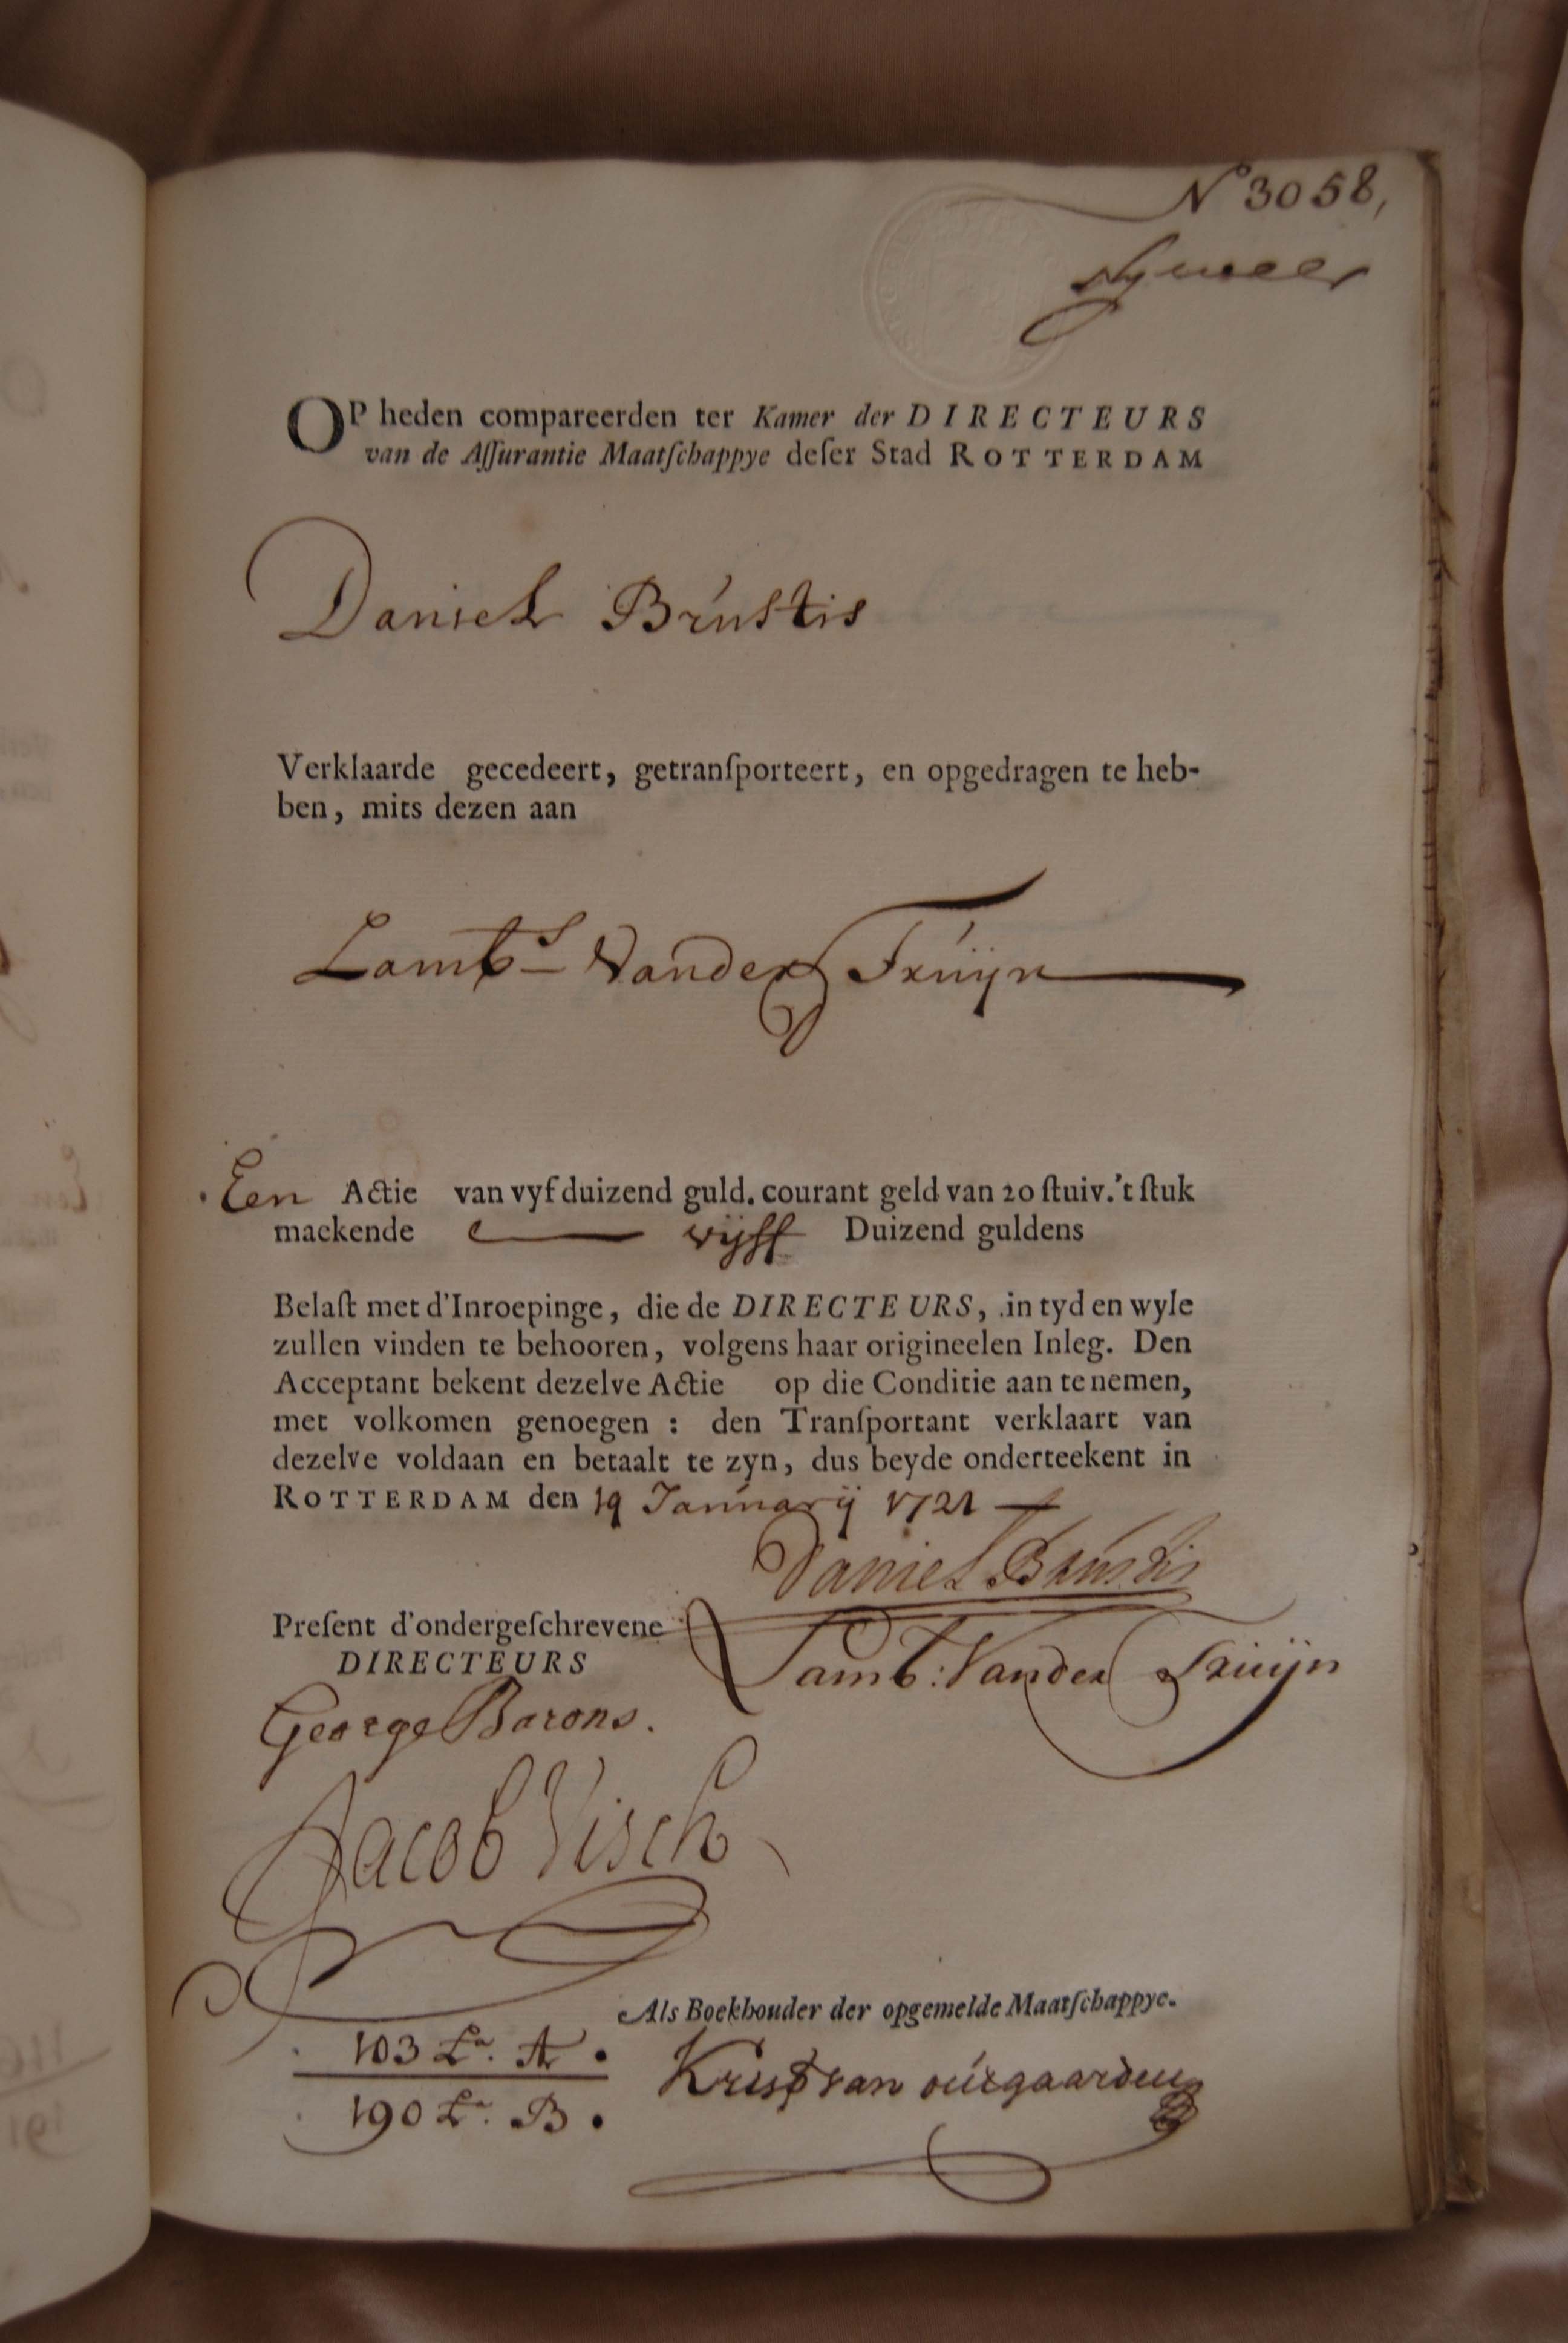 N° 3058,
OP heden compareerden ter Kamer der DIRECTEURS
van de Aſſurantie Maatſchappye deſer Stad ROTTERDAM
Daniel Brustis
Verklaarde gecedeert, getranſporteert, en opgedragen te heb-
ben, mits dezen aan
Lambs Vander Truijn
Een Actie van vyf duizend guld. courant geld van 20 ſtuiv. 't ſtuk
maekende vijff Duizend guldens
Belaſt met d'Inroepinge, die de DIRECTEURS, in tyd en wyle
zullen vinden te behooren, volgens haar origineelen Inleg. Den
Acceptant bekent dezelve Actie op die Conditie aan te nemen,
met volkomen genoegen : den Tranſportant verklaart van
dezelve voldaan en betaalt te zyn, dus beyde onderteekent in
ROTTERDAM den 19 Januarij 1721
Daniel Brustis
Preſent d'ondergeſchrevene
DIRECTEURS
Lamb: Vander Truijn
George Barons.
Jacob Visch
Als Boekhouder der opgemelde Maatſchappye.
103 La. A.
190 La. B.
van